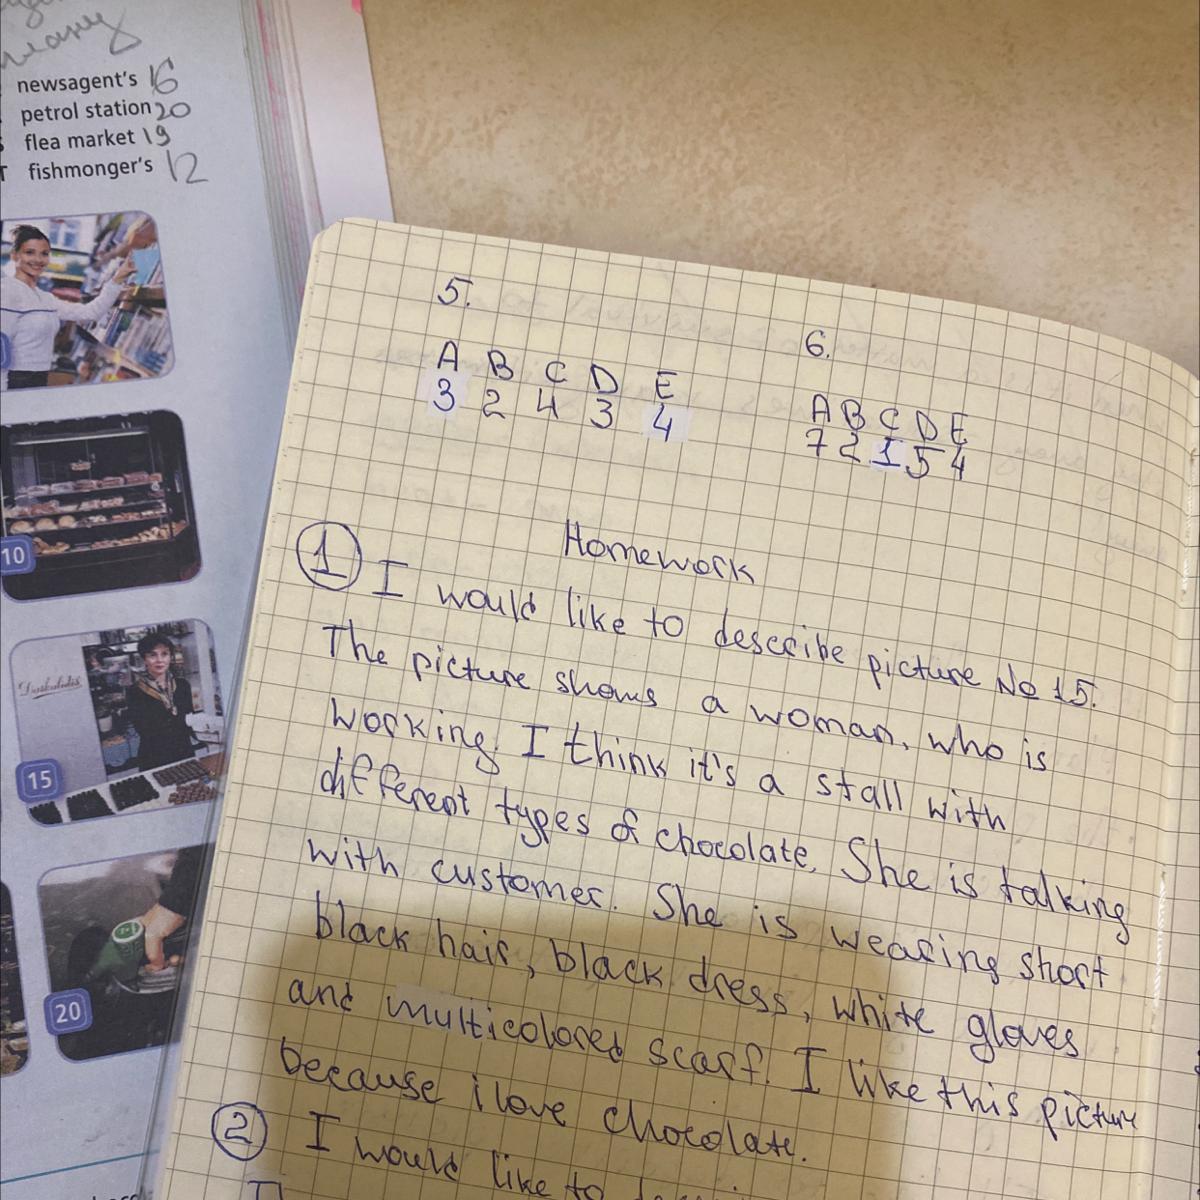 newsagent's 16
petrol station 20
flea market 19
fishmonger's 12
10
Daskalidès
15
20
5.
A B C D E
3 2 4 3 4
6.
A B C D E
7 2 1 5 4
Homework
1 I would like to describe picture No 15.
The picture shows a woman, who is
working. I think it's a stall with
different types of chocolate. She is talking
with customer. She is wearing short
black hair, black dress, white gloves
and multicolored scarf. I like this picture
because i love chocolate.
2 I would like to